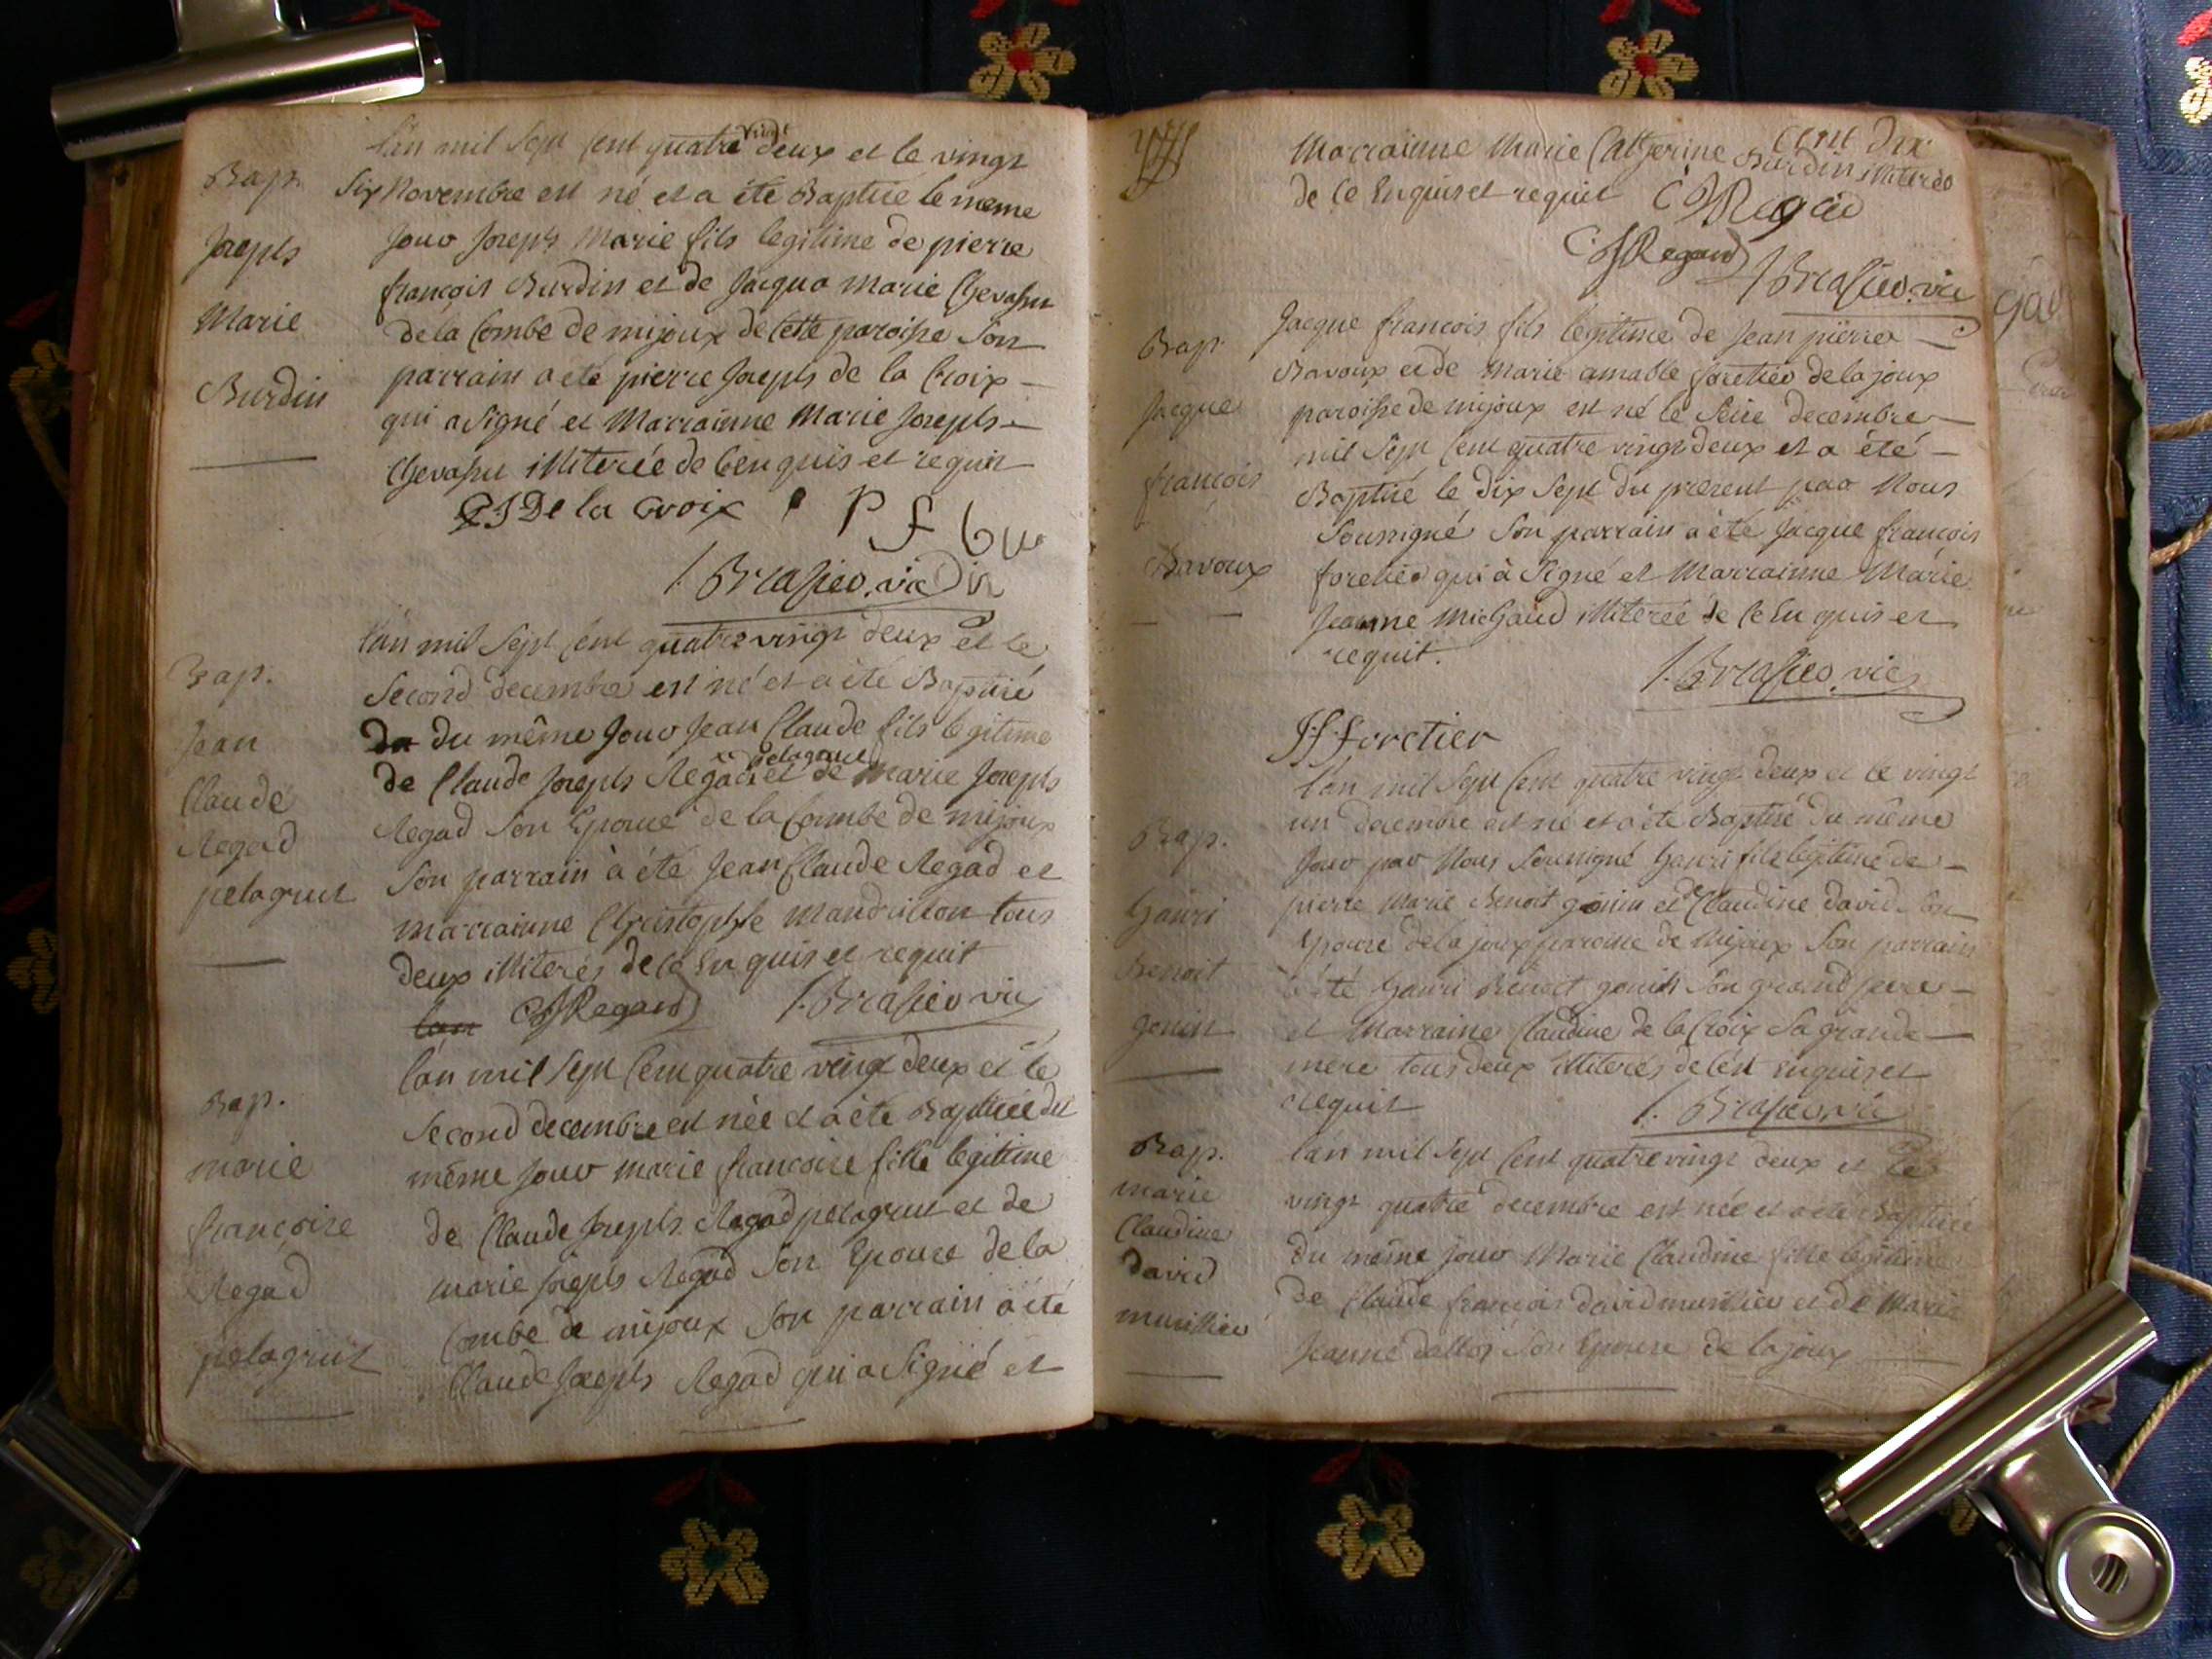 Bap.
Joseph
Marie
Burdin
L'an mil sept cent quatre vingt deux et le vingt
six Novembre est né et a été Baptisé le meme
jour Joseph Marie fils legitime de pierre
françois Burdin et de Jacqua Marie Chevassu
de la Combe de mijoux de Cette paroisse Son
parrain a été pierre Joseph de la Croix
qui a Signé et Marrainne Marie Joseph
Chevassu illiterée de Ce enquis et requit
PJ De la Croix P f bur
din
Brasier. vic
Bap.
Jean
Claude
Regad
pelagrut
l'an mil Sept Cent quatre vingt deux et le
Second decembre est né et a été Baptisé
du du même Jour Jean Claude fils legitime
de Claude Joseph Regad pelagrut et de Marie Joseph
Regad Son Epouse de la Combe de mijoux
Son parrain à été Jean Claude Regad et
marrainne Christophle Mandrillon tous
deux illiterés de ce Enquis et requit
lan CJRegard Brasier vic
Bap.
marie
françoise
Regad
pelagrut
l'an mil Sept Cent quatre vingt deux et le
Second decembre est née et a été Baptisée du
même Jour marie francoise fille legitime
de Claude Joseph Regad pelagrut et de
marie Joseph Regad Son Epouse de la
Combe de mijoux Son parrain a été
Claude Joseph Regad qui a Signé et
Cent Dix
Marrainne Marie Catherine Burdin illiterés
de Ce Enquis et requit Regad
CJRegard
Brasier. vic
Bap.
Jacque
françois
Bavoux
Jacque francois fils legitime de Jean pierre
Bavoux et de Marie amable foretier de lajoux
paroisse de mijoux est né le Seize decembre
mil Sept Cent quatre vingt deux et a été
Baptisé le dix Sept du present par Nous
Sousigné Son parrain a été Jacque francois
foretier qui à Signé et Marrainne Marie
Jeanne Michaud illiterée de Ce Enquis et
requit.
Brasier. vic
JF foretier
Bap.
hanri
Benoit
gonin
l'an mil Sept Cent quatre vingt deux et le vingt
un decembre est né et a été Baptisé du même
Jour par Nous Sousigné hanri fils legitime de
pierre Marie Benoit gonin et de Claudine david Son
Epouse de la joux parroisse de Mijoux Son parrain
a été hanri Benoit gonin Son grand pere
et Marraine Claudine de la Croix Sa grande
mere tous deux illiterés de Ce Enquis et
requit Brasier vic
Bap.
marie
Claudine
david
musillier
l'an mil Sept Cent quatre vingt deux et le
vingt quatre decembre est née et a été Baptisée
du même jour Marie Claudine fille legitime
de Claude francois david musillier et de Marie
Jeanne Son Epouse de la joux